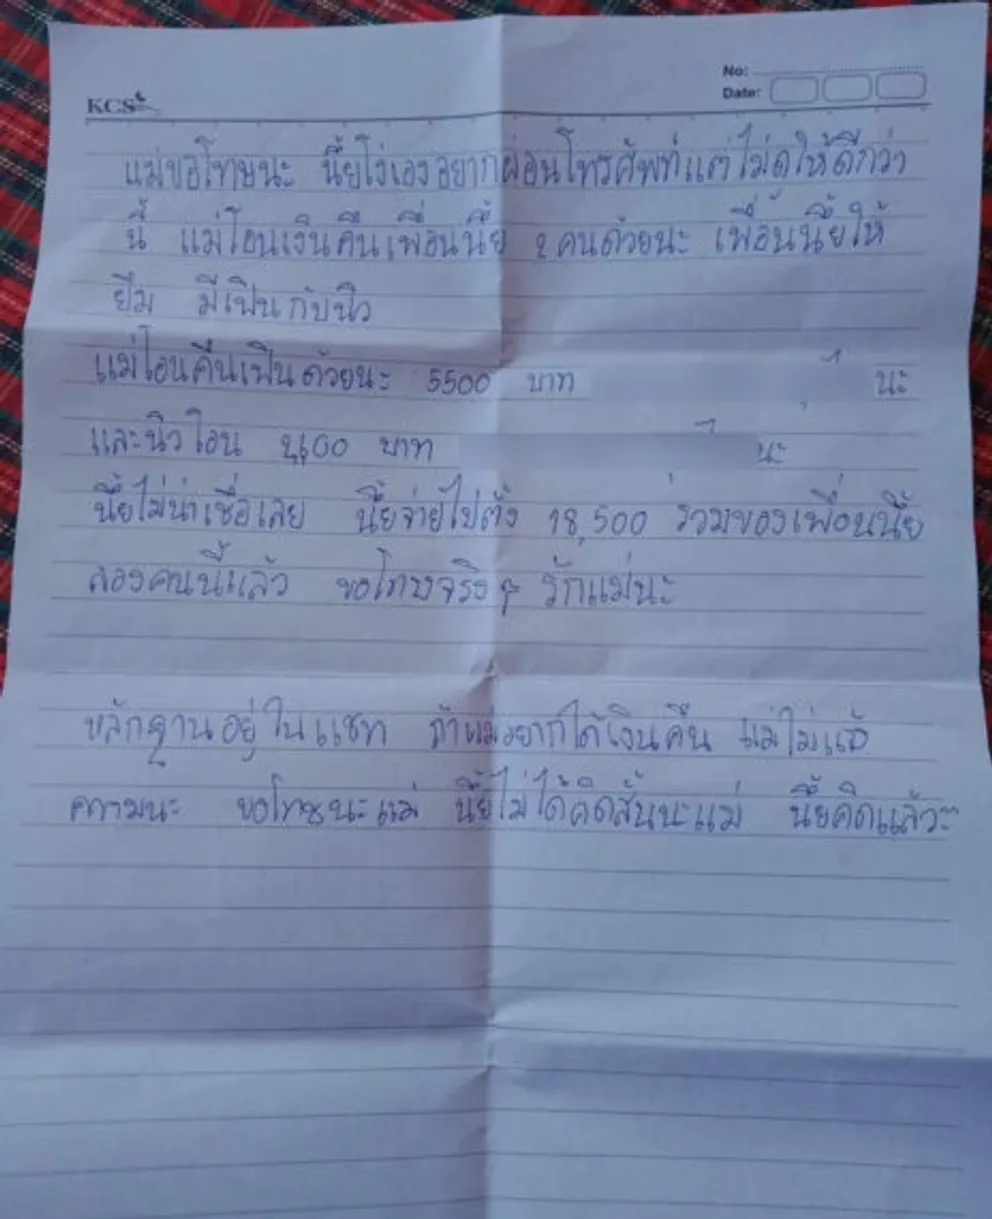 KCS
No:
Date:
แม่ขอโทษนะ นี้ยโง่เองอยากผ่อนโทรศัพท์แต่ไม่ดูให้ดีกว่า
นี้ แม่โอนเงินคืนเพื่อนนี้ย 2 คนด้วยนะ เพื่อนนี้ยให้
ยืม มีเฟินกับนิว
แม่โอนคืนเฟินด้วยนะ 5500 บาท นะ
และนิวโอน บาท นะ
นี้ยไม่น่าเชื่อเลย นี้ยจ่ายไปตั้ง 18,500 รวมของเพื่อนนี้ย
สองคนนี้แล้ว ขอโทษจริงๆ รักแม่นะ
หลักฐานอยู่ในแชท ถ้าแม่อยากได้เงินคืน แม่ไม่แจ้
ความนะ ขอโทษนะแม่ นี้ยไม่ได้คิดสั้นนะแม่ นี้ยคิดแล้ว